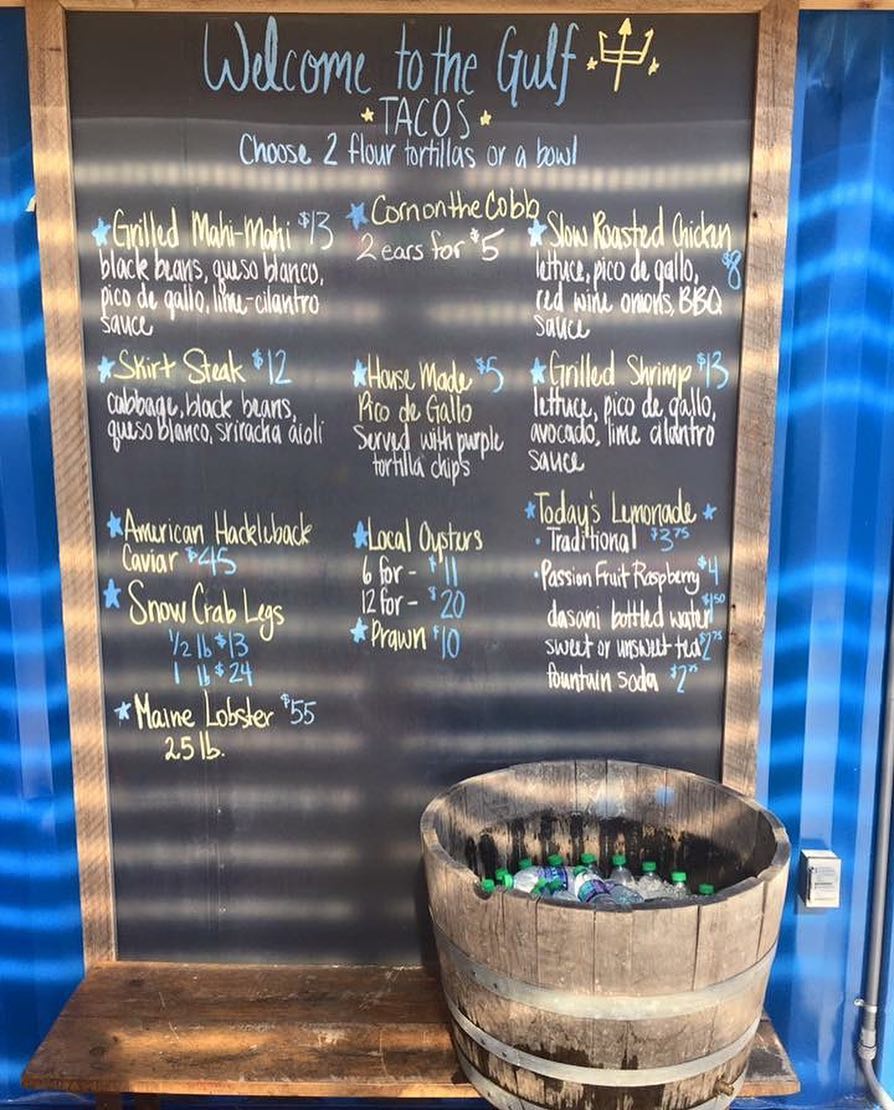 Welcome to the Gulf
TACOS
Choose 2 flour tortillas or a bowl
Grilled Mahi-Mahi $13
black beans, queso blanco,
pico de gallo, lime-cilantro
sauce
Skirt Steak $12
cabbage, black beans,
queso blanco, sriracha aioli
American Hackleback
Caviar $45
Snow Crab Legs
1/2 lb $13
1 lb $24
Maine Lobster $55
2.5 lb.
Corn on the Cobb
2 ears for $5
House Made $5
Pico de Gallo
Served with purple
tortilla chips
Local Oysters
6 for - $11
12 for - $20
Prawn $10
Slow Roasted Chicken
$8
lettuce, pico de gallo,
red wine onions, BBQ
sauce
Grilled Shrimp $13
lettuce, pico de gallo,
avocado, lime cilantro
sauce
Today's Lemonade
· Traditional $3.75
· Passion Fruit Raspberry $4
dasani bottled water $1.50
sweet or unsweet tea $2.75
fountain soda $2.75